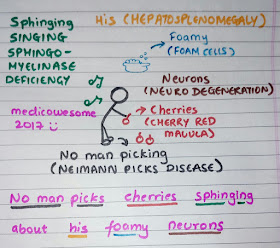 Sphinging
SINGING
SPHINGO-
MYELINASE
DEFICIENCY
His (HEPATOSPLENOMEGALY)
Foamy
(FOAM CELLS)
Neurons
(NEURO DEGENERATION)
medicowesome
2017
Cherries
(CHERRY RED
MACULA)
No man picking
(NEIMANN PICKS DISEASE)
No man picks cherries sphinging
about his foamy neurons